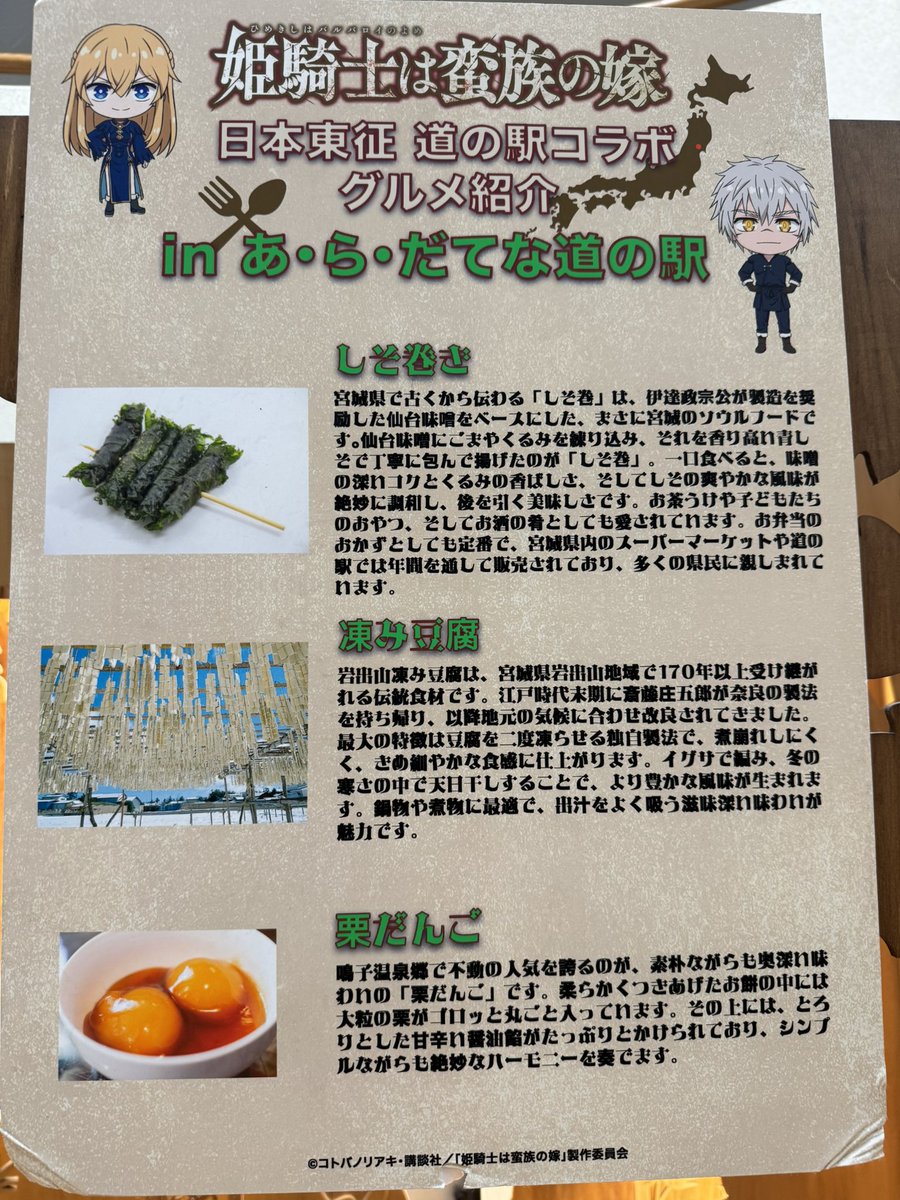 ひめきしはバルバロイのよめ
姫騎士は蛮族の嫁
日本東征 道の駅コラボ
グルメ紹介
in あ・ら・だてな道の駅
しそ巻き
宮城県で古くから伝わる「しそ巻」は、伊達政宗公が製造を奨
励した仙台味噌をベースにした、まさに宮城のソウルフードで
す。仙台味噌にごまやくるみを練り込み、それを香り高い青し
そで丁寧に包んで揚げたのが「しそ巻」。一口食べると、味噌
の深いコクとくるみの香ばしさ、そしてしその爽やかな風味が
絶妙に調和し、後を引く美味しさです。お茶うけや子どもたち
のおやつ、そしてお酒の肴としても愛されています。お弁当の
おかずとしても定番で、宮城県内のスーパーマーケットや道の
駅では年間を通して販売されており、多くの県民に親しまれて
います。
凍み豆腐
岩出山凍み豆腐は、宮城県岩出山地域で170年以上受け継が
れる伝統食材です。江戸時代末期に斎藤庄五郎が奈良の製法
を持ち帰り、以降地元の気候に合わせ改良されてきました。
最大の特徴は豆腐を二度凍らせる独自製法で、煮崩れしにく
く、きめ細やかな食感に仕上がります。イグサで編み、冬の
寒さの中で天日干しすることで、より豊かな風味が生まれま
す。鍋物や煮物に最適で、出汁をよく吸う滋味深い味わいが
魅力です。
栗だんご
鳴子温泉郷で不動の人気を誇るのが、素朴ながらも奥深い味
わいの「栗だんご」です。柔らかくつきあげたお餅の中には
大粒の栗がゴロッと丸ごと入っています。その上には、とろ
りとした甘辛い醤油餡がたっぷりとかけられており、シンプ
ルながらも絶妙なハーモニーを奏でます。
©コトバノリアキ・講談社／「姫騎士は蛮族の嫁」製作委員会